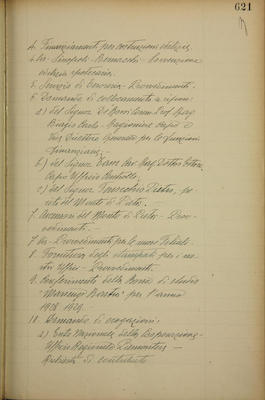 621
4. Finanziamenti per costruzioni edilizie.
4 bis - Convenzione
edilizia ipotecaria.
5. Servizio di Tesoreria - Provvedimenti.
6. Domande di collocamento a riposo:
a) del Signor De Comm. Prof. Rag.
Carlo - Ragioniere Capo e
Vice Direttore Generale per le funzioni
finanziarie. -
b) del Signor Cav. Rag. Dottor
Capo Ufficio Controllo;
c) del Signor Pietro, pe-
rito del Monte di Pietà. -
7. del Monte di Pietà - Prov-
vedimenti. -
7 bis - Provvedimenti per le nuove Filiali. -
8. Fornitura degli stampati per i no-
stri Uffici - Provvedimenti. -
9. Conferimento della Borsa di studio
" " per l'anno
1928-1929. -
10. Domande di erogazioni:
a) Ente Nazionale della Cooperazione -
Ufficio Regionale Piemontese -
Richiesta di contributo